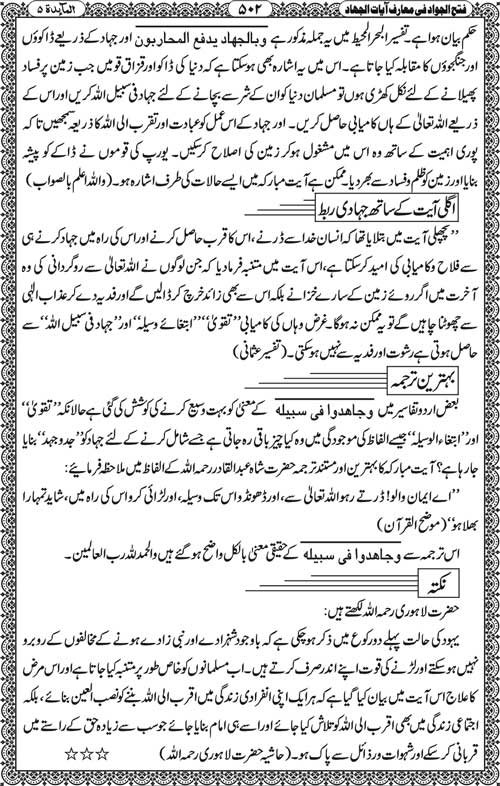 فتح الجواد فی معارف آیات الجهاد
۵۰۲
المآیدة ۵
حکم بیان ہوا ہے۔ تفسیر البحر المحیط میں یہ جملہ مذکور ہے وبالجهاد یدفع المحاربون اور جہاد کے ذریعے ڈاکوؤں
اور جنگجوؤں کا مقابلہ کیا جاتا ہے۔ اس میں یہ اشارہ بھی ہوسکتا ہے کہ دنیا کی ڈاکو اور قزاق قومیں جب زمین پر فساد
پھیلانے کے لئے نکل کھڑی ہوں تو مسلمان دنیا کو ان کے شر سے بچانے کے لئے جہاد فی سبیل اللہ کریں اور اس کے
ذریعے اللہ تعالیٰ کے ہاں کامیابی حاصل کریں۔ اور جہاد کے اس عمل کو عبادت اور تقرب الی اللہ کا ذریعہ سمجھیں تاکہ
پوری اہمیت کے ساتھ وہ اس میں مشغول ہوکر زمین کی اصلاح کرسکیں۔ یورپ کی قوموں نے ڈاکے کو پیشہ
بنایا اور زمین کو ظلم و فساد سے بھر دیا۔ ممکن ہے آیت مبارکہ میں ایسے حالات کی طرف اشارہ ہو۔ (واللہ اعلم بالصواب)
اگلی آیت کے ساتھ جہادی ربط
’’پچھلی آیت میں بتلایا تھا کہ انسان خدا سے ڈرنے، اس کا قرب حاصل کرنے اور اس کی راہ میں جہاد کرنے ہی
سے فلاح و کامیابی کی امید کرسکتا ہے، اس آیت میں متنبہ فرما دیا کہ جن لوگوں نے اللہ تعالیٰ سے روگردانی کی وہ
آخرت میں اگر روئے زمین کے سارے خزانے بلکہ اس سے بھی زائد خرچ کر ڈالیں گے اور فدیہ دے کر عذاب الٰہی
سے چھوٹنا چاہیں گے تو یہ ممکن نہ ہوگا۔ غرض وہاں کی کامیابی ’’تقویٰ‘‘ ’’ابتغائے وسیلہ‘‘ اور ’’جہاد فی سبیل اللہ‘‘ سے
حاصل ہوتی ہے رشوت اور فدیہ سے نہیں ہوسکتی۔ (تفسیر عثمانی)
بہترین ترجمہ
بعض اردو تفاسیر میں وجاهدوا فی سبیله کے معنیٰ کو بہت وسیع کرنے کی کوشش کی گئی ہے حالانکہ ’’تقویٰ‘‘
اور ’’ابتغاء الوسیلہ‘‘ جیسے الفاظ کی موجودگی میں وہ کیا چیز باقی رہ جاتی ہے جسے شامل کرنے کے لئے جہاد کو ’’جدوجہد‘‘ بنایا
جارہا ہے؟ آیت مبارکہ کا بہترین اور مستند ترجمہ حضرت شاہ عبدالقادر رحمہ اللہ کے الفاظ میں ملاحظہ فرمایئے:
’’اے ایمان والو! ڈرتے رہو اللہ تعالیٰ سے، اور ڈھونڈو اس تک وسیلہ، اور لڑائی کرو اس کی راہ میں، شاید تمہارا
بھلا ہو‘‘ (موضح القرآن)
اس ترجمہ سے وجاهدوا فی سبیله کے حقیقی معنیٰ بالکل واضح ہوگئے ہیں والحمدللہ رب العالمین۔
نکتہ
حضرت لاہوری رحمہ اللہ لکھتے ہیں:
یہود کی حالت پہلے دو رکوع میں ذکر ہوچکی ہے کہ باوجود شہزادے اور نبی زادے ہونے کے مخالفوں کے روبرو
نہیں ہوسکتے اور لڑنے کی قوت اپنے اندر صرف کرتے ہیں۔ اب مسلمانوں کو خاص طور پر متنبہ کیا جاتا ہے اور اس مرض
کا علاج اس آیت میں بیان کیا گیا ہے کہ ہر ایک اپنی انفرادی زندگی میں اقرب الی اللہ بننے کو نصب العین بنائے، بلکہ
اجتماعی زندگی میں بھی اقرب الی اللہ کو تلاش کیا جائے اور اسے ہی امام بنایا جائے جو سب سے زیادہ حق کے راستے میں
قربانی کرسکے اور شہوات و رذائل سے پاک ہو۔ (حاشیہ حضرت لاہوری رحمہ اللہ) ☆☆☆